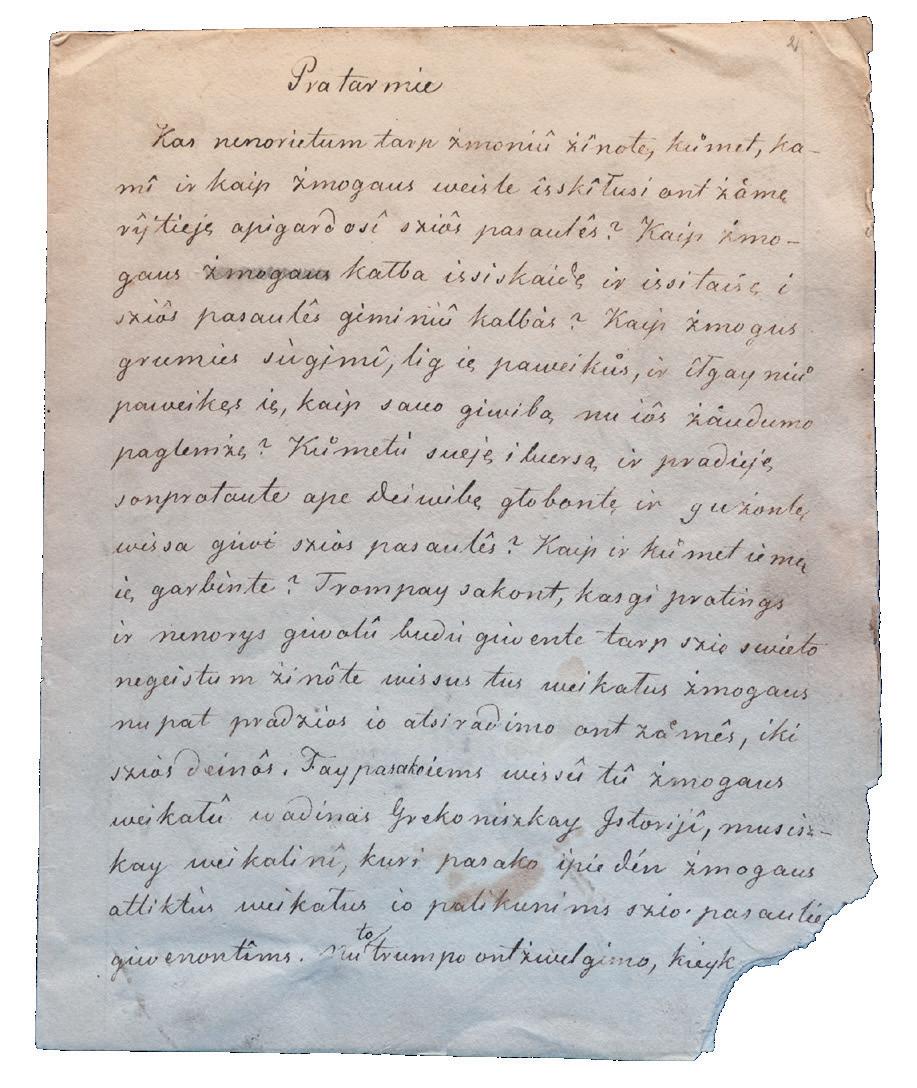 2
Pratarmie
Kas nenorietum tarp żmoniû żînotę, kůmet, ka-
mî ir kaip żmogaus weisle îsskîłusi ont żåmę
rŷtieję apigardosî sziôs pasaulês? Kaip żmo-
gaus żmogaus kałba issiskaidę ir issitaisę i
sziôs pasaulês giminiû kalbàs? Kaip żmogus
grumies sùgimî, lig ię paweikůs, ir îłgay niů
paweikęs ię, kaip sawo giwibą nu iôs żåudumo
paglemżę? Kůmetù sueję i buersą ir pradieję
sonprotaute ape deiwibę głobontę ir gużontę
wissa giwi sziôs pasaulês? Kaip ir kůmet iemę
ię garbinte? Trompay sakont, kasgi pratings
ir nenorys giwolû budù giwente tarp szio swieto
negeistum żinôte wissus tus weikatus żmogaus
nu pat pradzios io atsiradimo ont żåmês, iki
sziôs deinôs. Tay pasakoiems wissû tû żmogaus
weikatû wadinas Grekoniszkay Jstorijî, musisz-
kay weikalinî, kuri pasako ipiedén żmogaus
atliktùs weikatus io palikunims szio pasaulie
giwenontîms. Nu to trumpo ontżwelgimo, kieyk